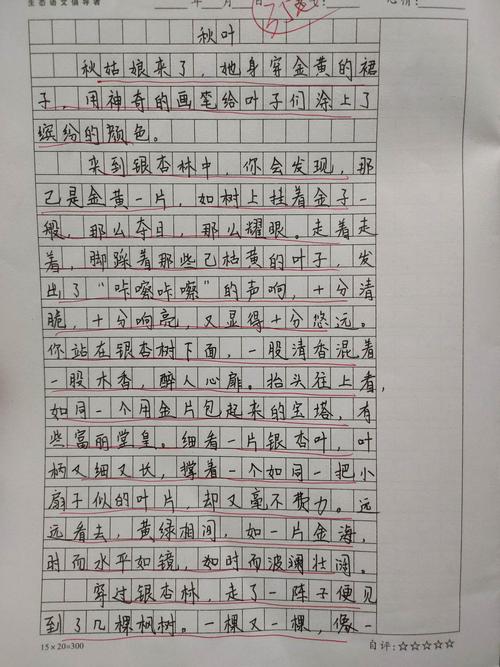 生态语文倡导者
年 月 日
心情：
秋叶
秋姑娘来了，她身穿金黄的裙
子，用神奇的画笔给叶子们涂上了
缤纷的颜色。
来到银杏林中，你会发现，那
已是金黄一片，如树上挂着金子一
般，那么夺目，那么耀眼。走着走
着，脚踩着那些已枯黄的叶子，发
出了“咔嚓咔嚓”的声响，十分清
脆，十分响亮，又显得十分悠远。
你站在银杏树下面，一股清香混着
一股木香，醉人心扉。抬头往上看，
如同一个用金片包起来的宝塔，有
些富丽堂皇。细看一片银杏叶，叶
柄又细又长，撑着一个如同一把小
扇子似的叶片，却又毫不费力。远
远看去，黄绿相间，如一片金海，
时而水平如镜，如时而波澜壮阔。
穿过银杏林，走了一阵子便见
到了几棵枫树。一棵又一棵，像一
15×20=300
自评：☆☆☆☆☆